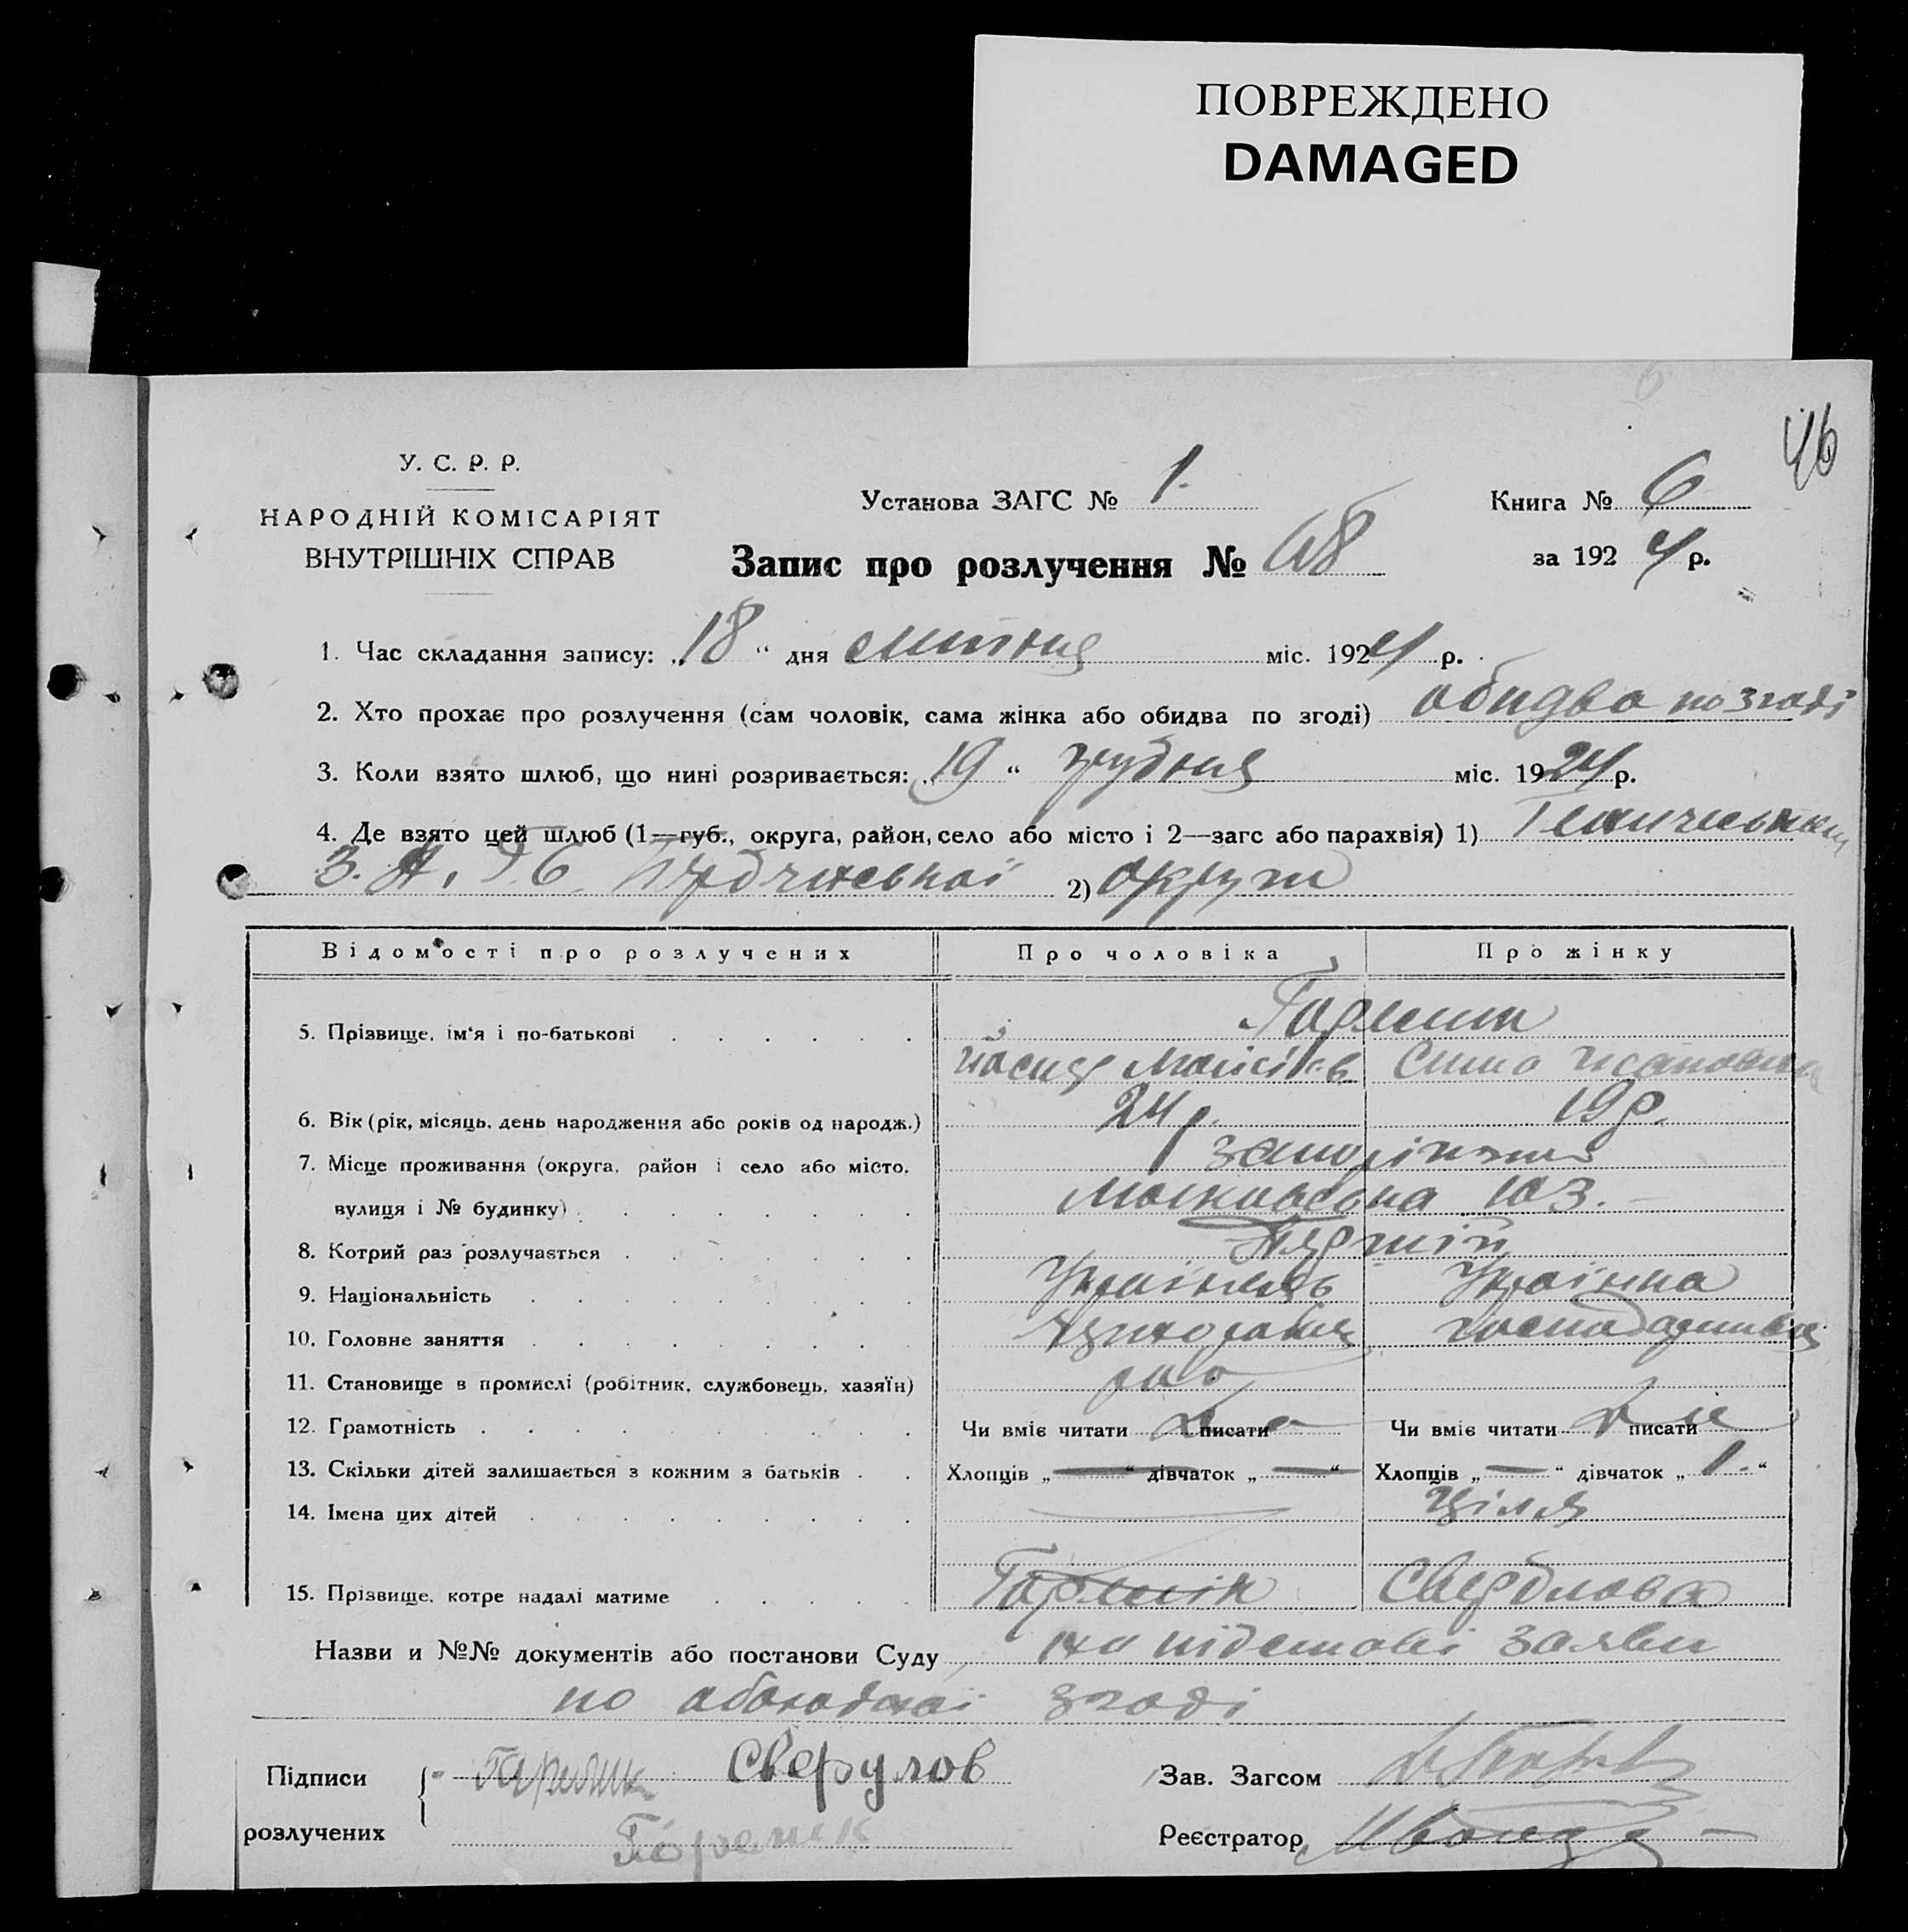 ПОВРЕЖДЕНО
DAMAGED
46
У. С. Р. Р.
НАРОДНІЙ КОМІСАРІЯТ
ВНУТРІШНІХ СПРАВ
Установа ЗАГС № 1.
Книга № 6
Запис про розлучення № 68
за 1924 р.
1. Час складання запису: „18“ дня міс. 1924 р.
2. Хто прохає про розлучення (сам чоловік, сама жінка або обидва по згоді) обидва по згоді
3. Коли взято шлюб, що нині розривається: „19“ грудня міс. 1924 р.
4. Де взято цей шлюб (1—губ., округа, район, село або місто і 2—загс або парахвія) 1)
2) округи
Відомості про розлучених
Про чоловіка
Про жінку
5. Прізвище, ім'я і по-батькові
6. Вік (рік, місяць, день народження або років од народж.) 24 р. 19 р.
7. Місце проживання (округа, район і село або місто, запоріжжя
вулиця і № будинку) Московська 103.
8. Котрий раз розлучається перший
9. Національність Українець Українка
10. Головне заняття
11. Становище в промислі (робітник, службовець, хазяїн) роб
12. Грамотність Чи вміє читати писати Чи вміє читати писати
13. Скільки дітей залишається з кожним з батьків Хлопців „—“ дівчаток „—“ Хлопців „—“ дівчаток „1.“
14. Імена цих дітей Ціля
15. Прізвище, котре надалі матиме Свердлова
Назви и №№ документів або постанови Суду на підставі заяви
по згоді
Підписи
розлучених
Зав. Загсом
Реєстратор